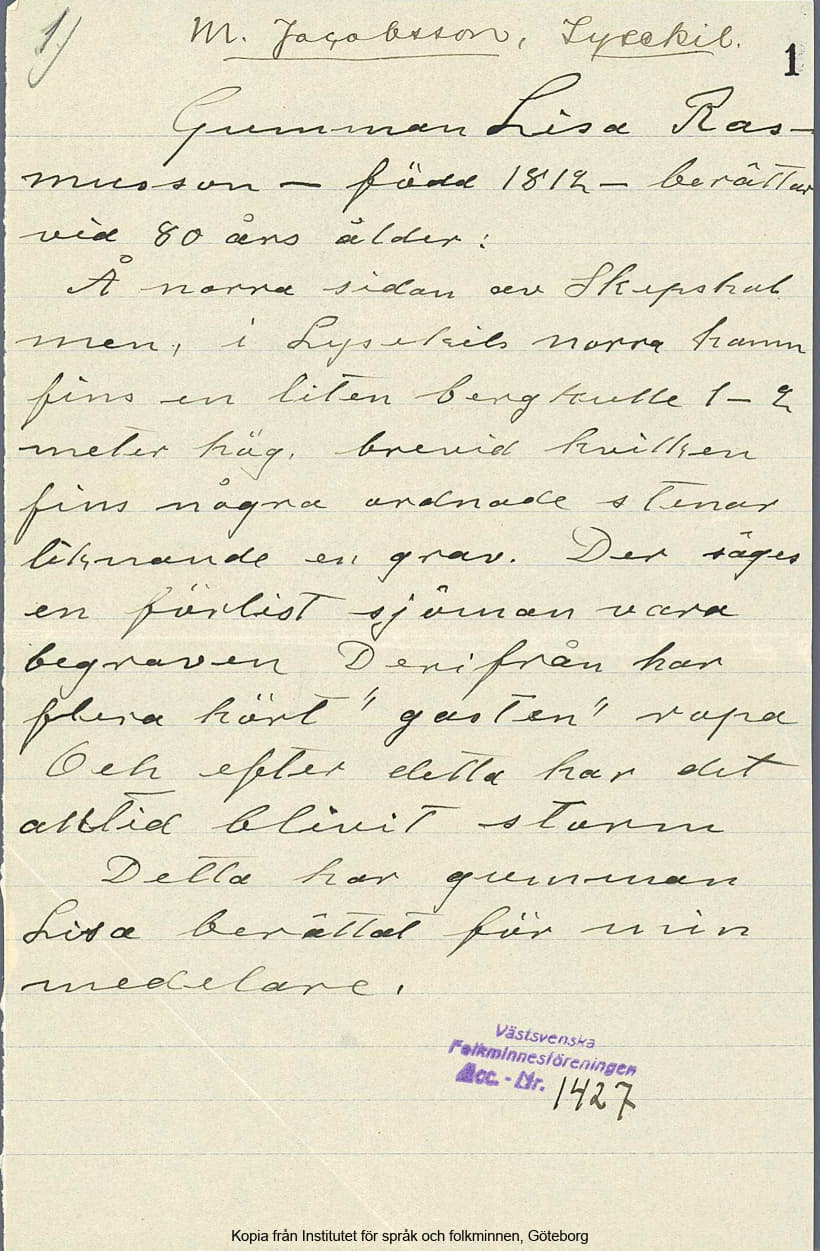 1)
M. Jacobsson, Lysekil.
1
Gumman Lisa Ras-
musson — född 1812 — berättar
vid 80 års ålder:
Å norra sidan av Skepshol
men, i Lysekils norra hamn
fins en liten bergkulle 1–2
meter hög, brevid hvilken
fins några ordnade stenar
liknande en grav. Der säges
en förlist sjöman vara
begraven Derifrån har
flera hört "gasten" ropa
Och efter detta har det
alltid blivit storm
Detta har gumman
Lisa berättat för min
medelare.
Västsvenska
Folkminnesföreningen
Acc. - Nr. 1427
Kopia från Institutet för språk och folkminnen, Göteborg